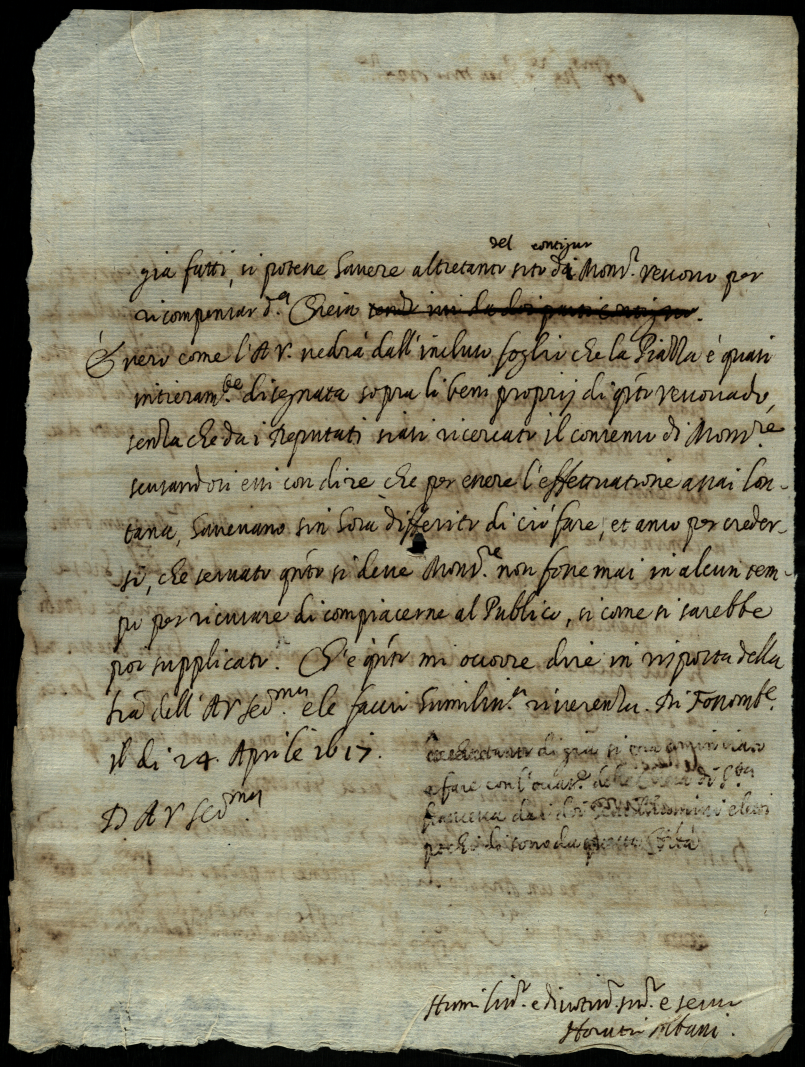 del contiguo
già fatti, si potesse havere altretanto sito di Mons.r vescovo per
ricompensar d.a Chiesa
È vero come l'A V. vedrà dall'incluso foglio che la Piazza è quasi
intieram.te disegnata sopra li beni proprij di q'sto vescovado,
senza che da i Deputati siasi ricercato il consenso di Mons.re
scusandosi essi con dire che per essere l'effettuatione assai lon-
tana, havevano sin hora differito di ciò fare, et anco per creder-
si, che servato q'sto si deve Mons.re non fosse mai in alcun tem-
po per ricusare di compiacerne al Publico, si come si sarebbe
poi supplicato. Ch'è q'sto mi occorre dire in risposta della
l'ra dell'A V Ser.ma e le faccio humiliss.a riverenza. Di Fossomb.e
Il dì 24. Aprile 1617.
D A V Ser.ma
di già si era
a fare con l'
Francesca da i doi eletti
perhò di sono da questa Città
Humiliss.o e divotiss.o sud.o e servo
Horatio Albani.